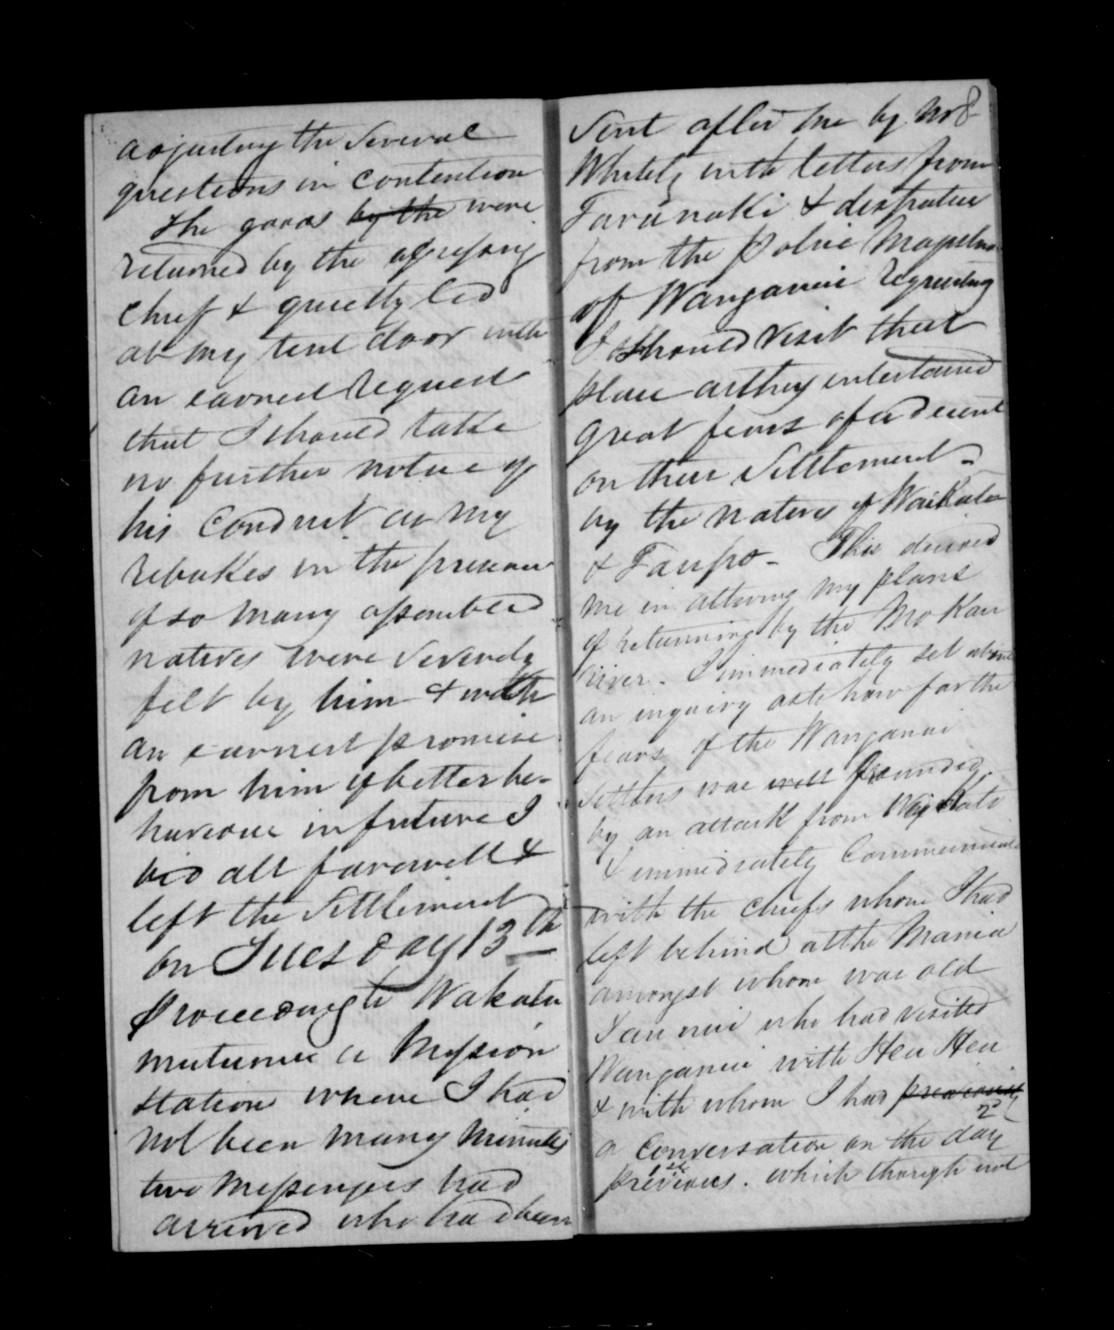 adjusting the Several
questions in contention
The goods by the were
returned by the agressing
chief & quietly led
at my tent door with
an earnest request
that I should take
no further notice of
his Conduct as my
rebukes in the presence
of so many assembled
natives were severely
felt by him & with
an earnest promise
from him of better be-
haviour in future I
bid all farewell &
left the Settlement
on Tuesday 13th
Proceeding to Wakatu
mutumu a Mission
Station where I had
not been many minutes
two Messengers had
arrived who had been
8
Sent after me by Mr
Whitely with letters from
Taranaki & dispatches
from the Police Magistrate
of Wanganui Requesting
I should visit that
place as they entertained
great fears of a decent
on their Settlement
by the natives of Waikato
& Taupo - This decided
me in altering my plans
of returning by the Mo Kau
river. I immediately set about
an inquiry as to how far the
fears of the Wanganui
Settlers was well grounded
by an attack from Waikato
I immediately Communicated
with the chiefs whom I had
left behind at the Mania
amongst whom was old
Taonui who had visited
Wanganui with Heu Heu
& with whom I had previously
a 1st conversation on the 2d day
previous. which though not